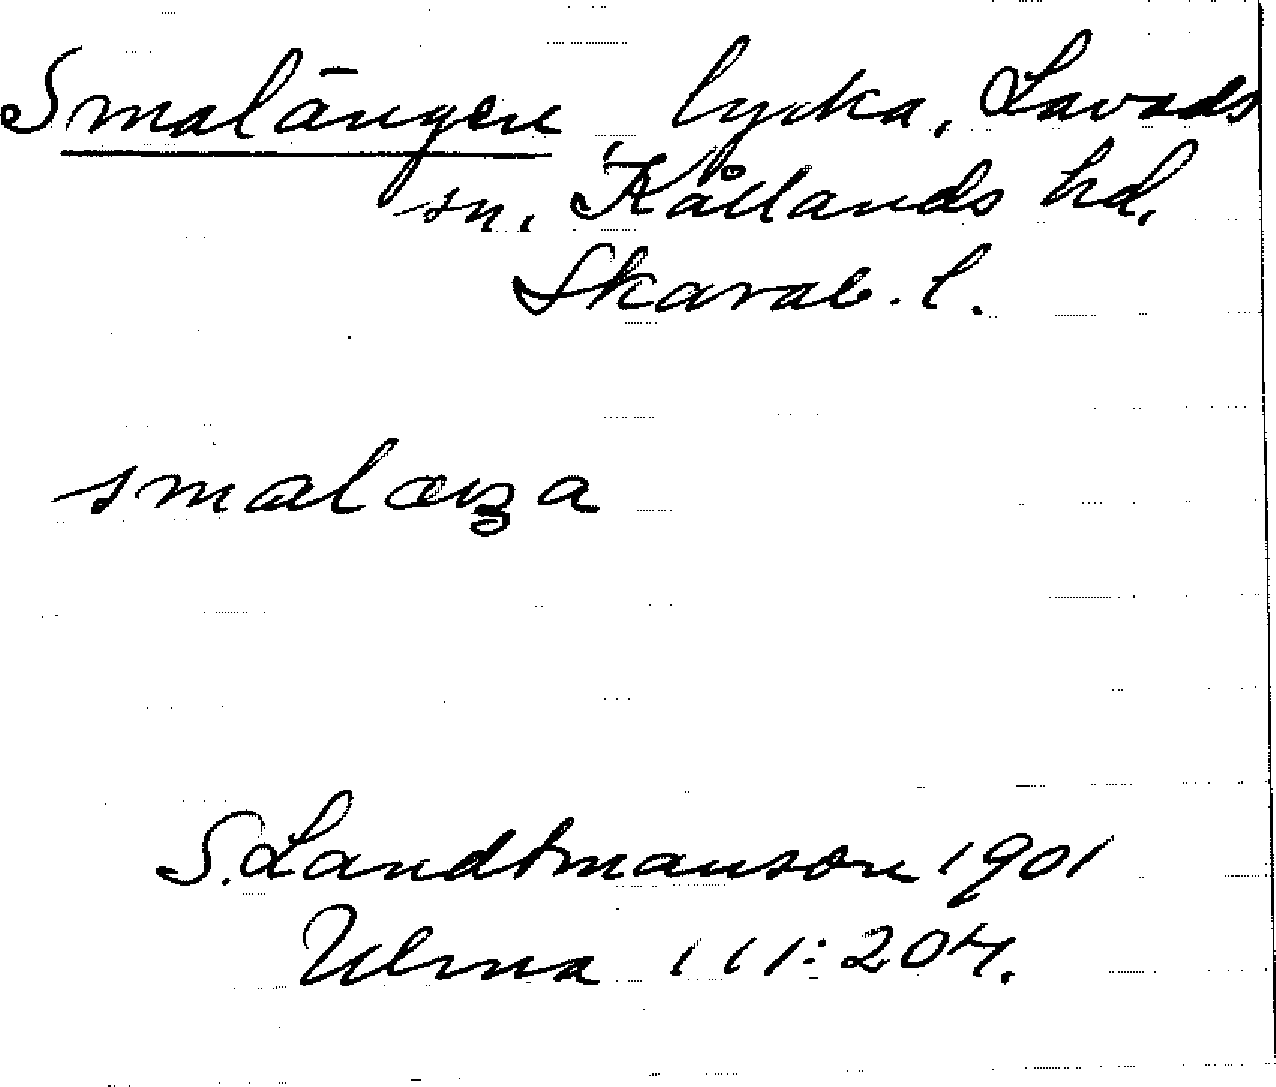 Smalängen, lycka, Lavads
sn, Kållands hd,
Skarab. l.
smalæŋa
S. Landtmanson 1901
Ulma 111:204.